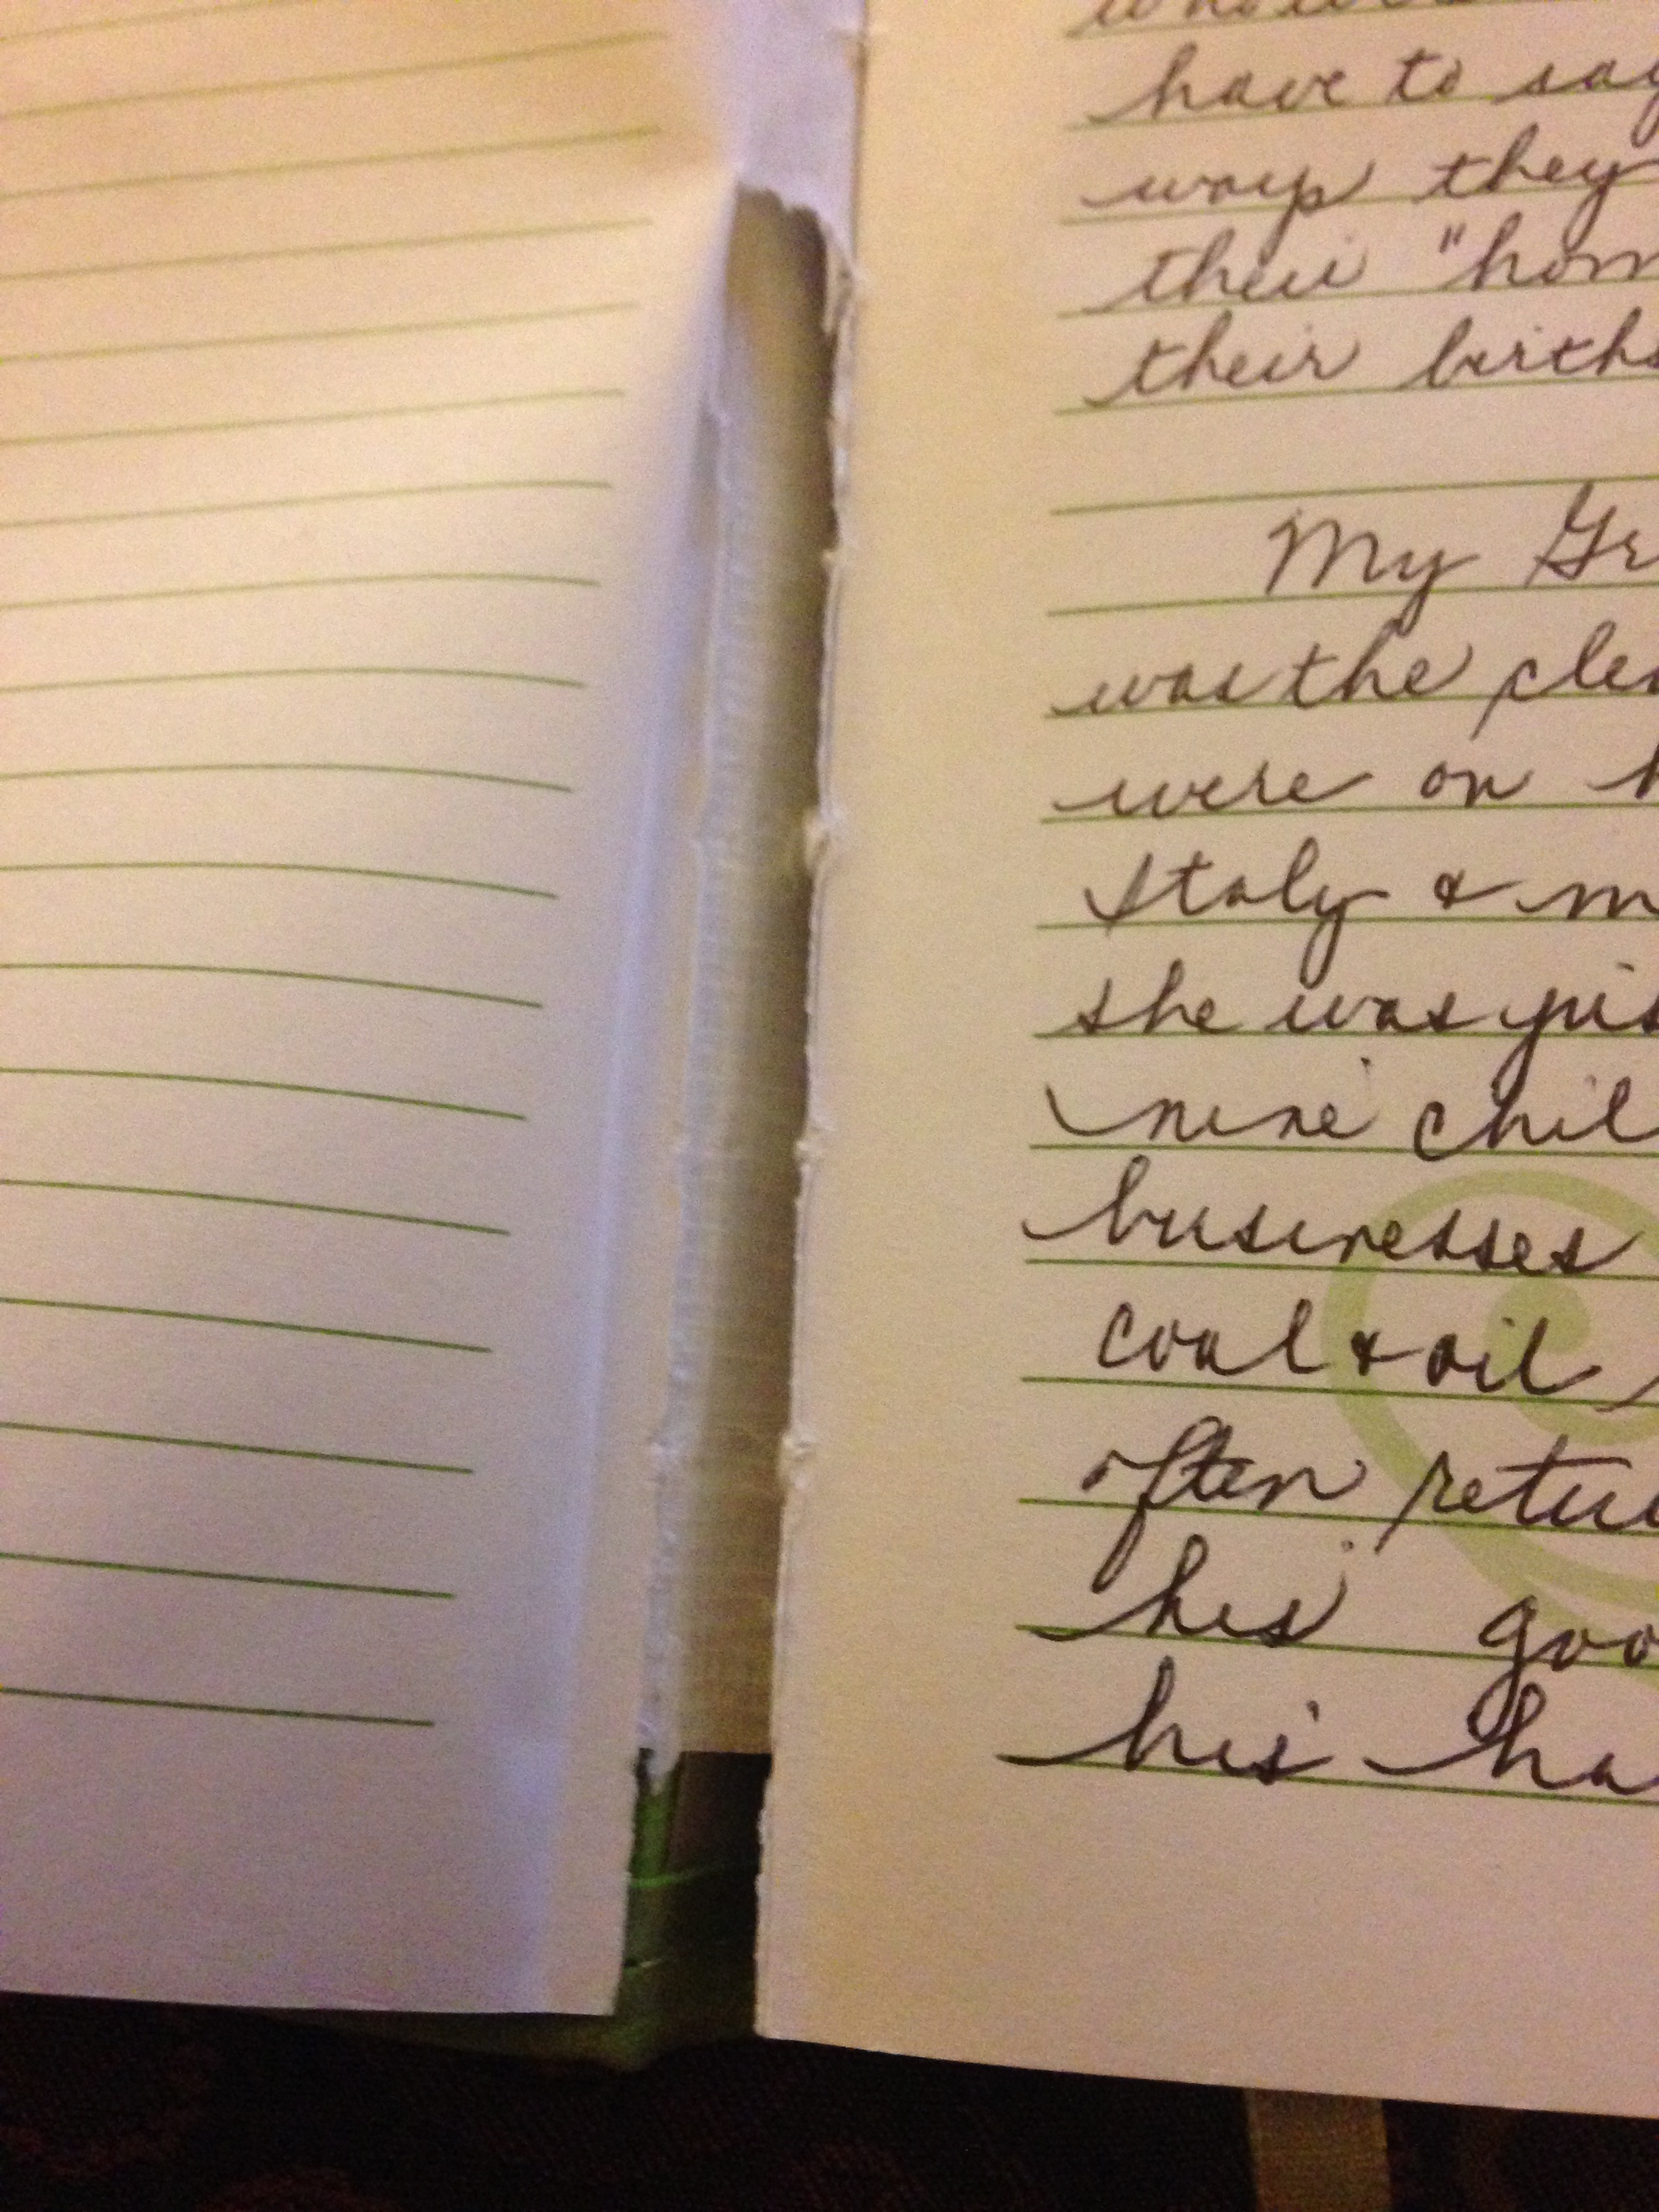 have to say
ways they
their "hom
their births
My Gr
was the cle
were on h
Italy & m
she was jus
nine chil
businesses
coal & oil
often retu
his goo
his ha